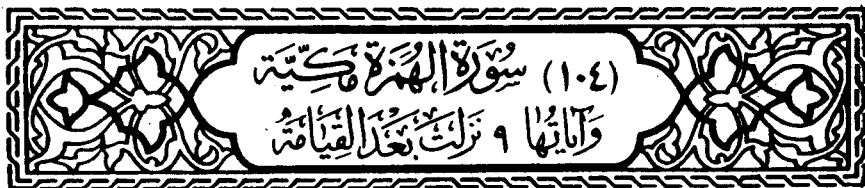 (١٠٤) سُورَةُ الهُمَزَة مَكِيَّة
وَآيَاتُهَا ٩ نَزَلَتْ بَعْدَ القِيَامَة